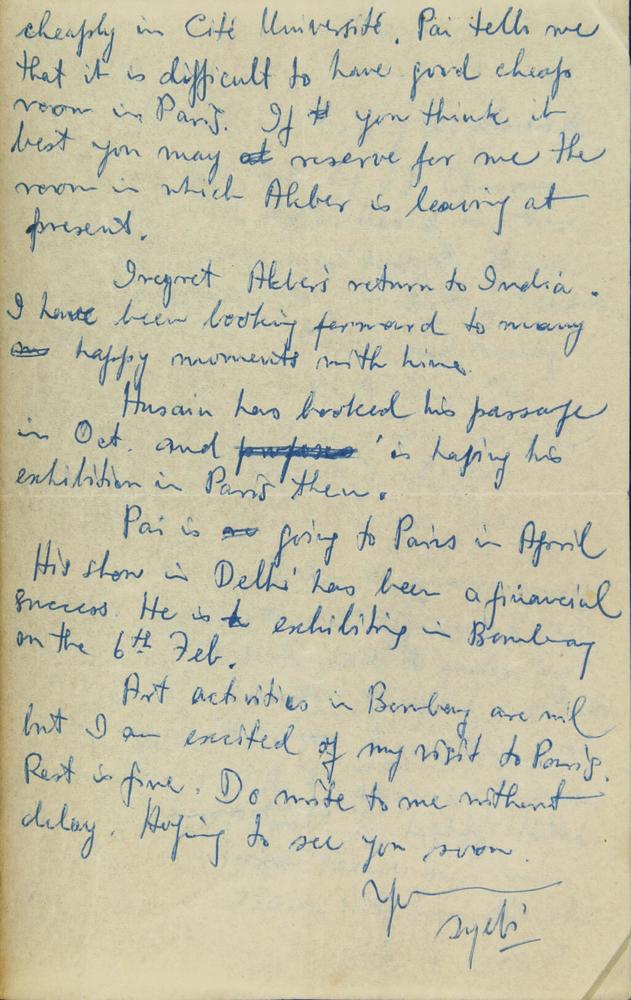 cheaply in Cité Université. Pai tells me
that it is difficult to have good cheap
room in Paris. If you think it
best you may reserve for me the
room in which Akber is leaving at
present.
I regret Akber's return to India.
I have been looking forward to many
happy moments with him.
Husain has booked his passage
in Oct. and is having his
exhibition in Paris then.
Pai is going to Paris in April
His show in Delhi has been a financial
success. He is exhibiting in Bombay
on the 6th Feb.
Art activities in Bombay are nil
but I am excited of my visit to Paris.
Rest is fine. Do write to me without
delay. Hoping to see you soon.